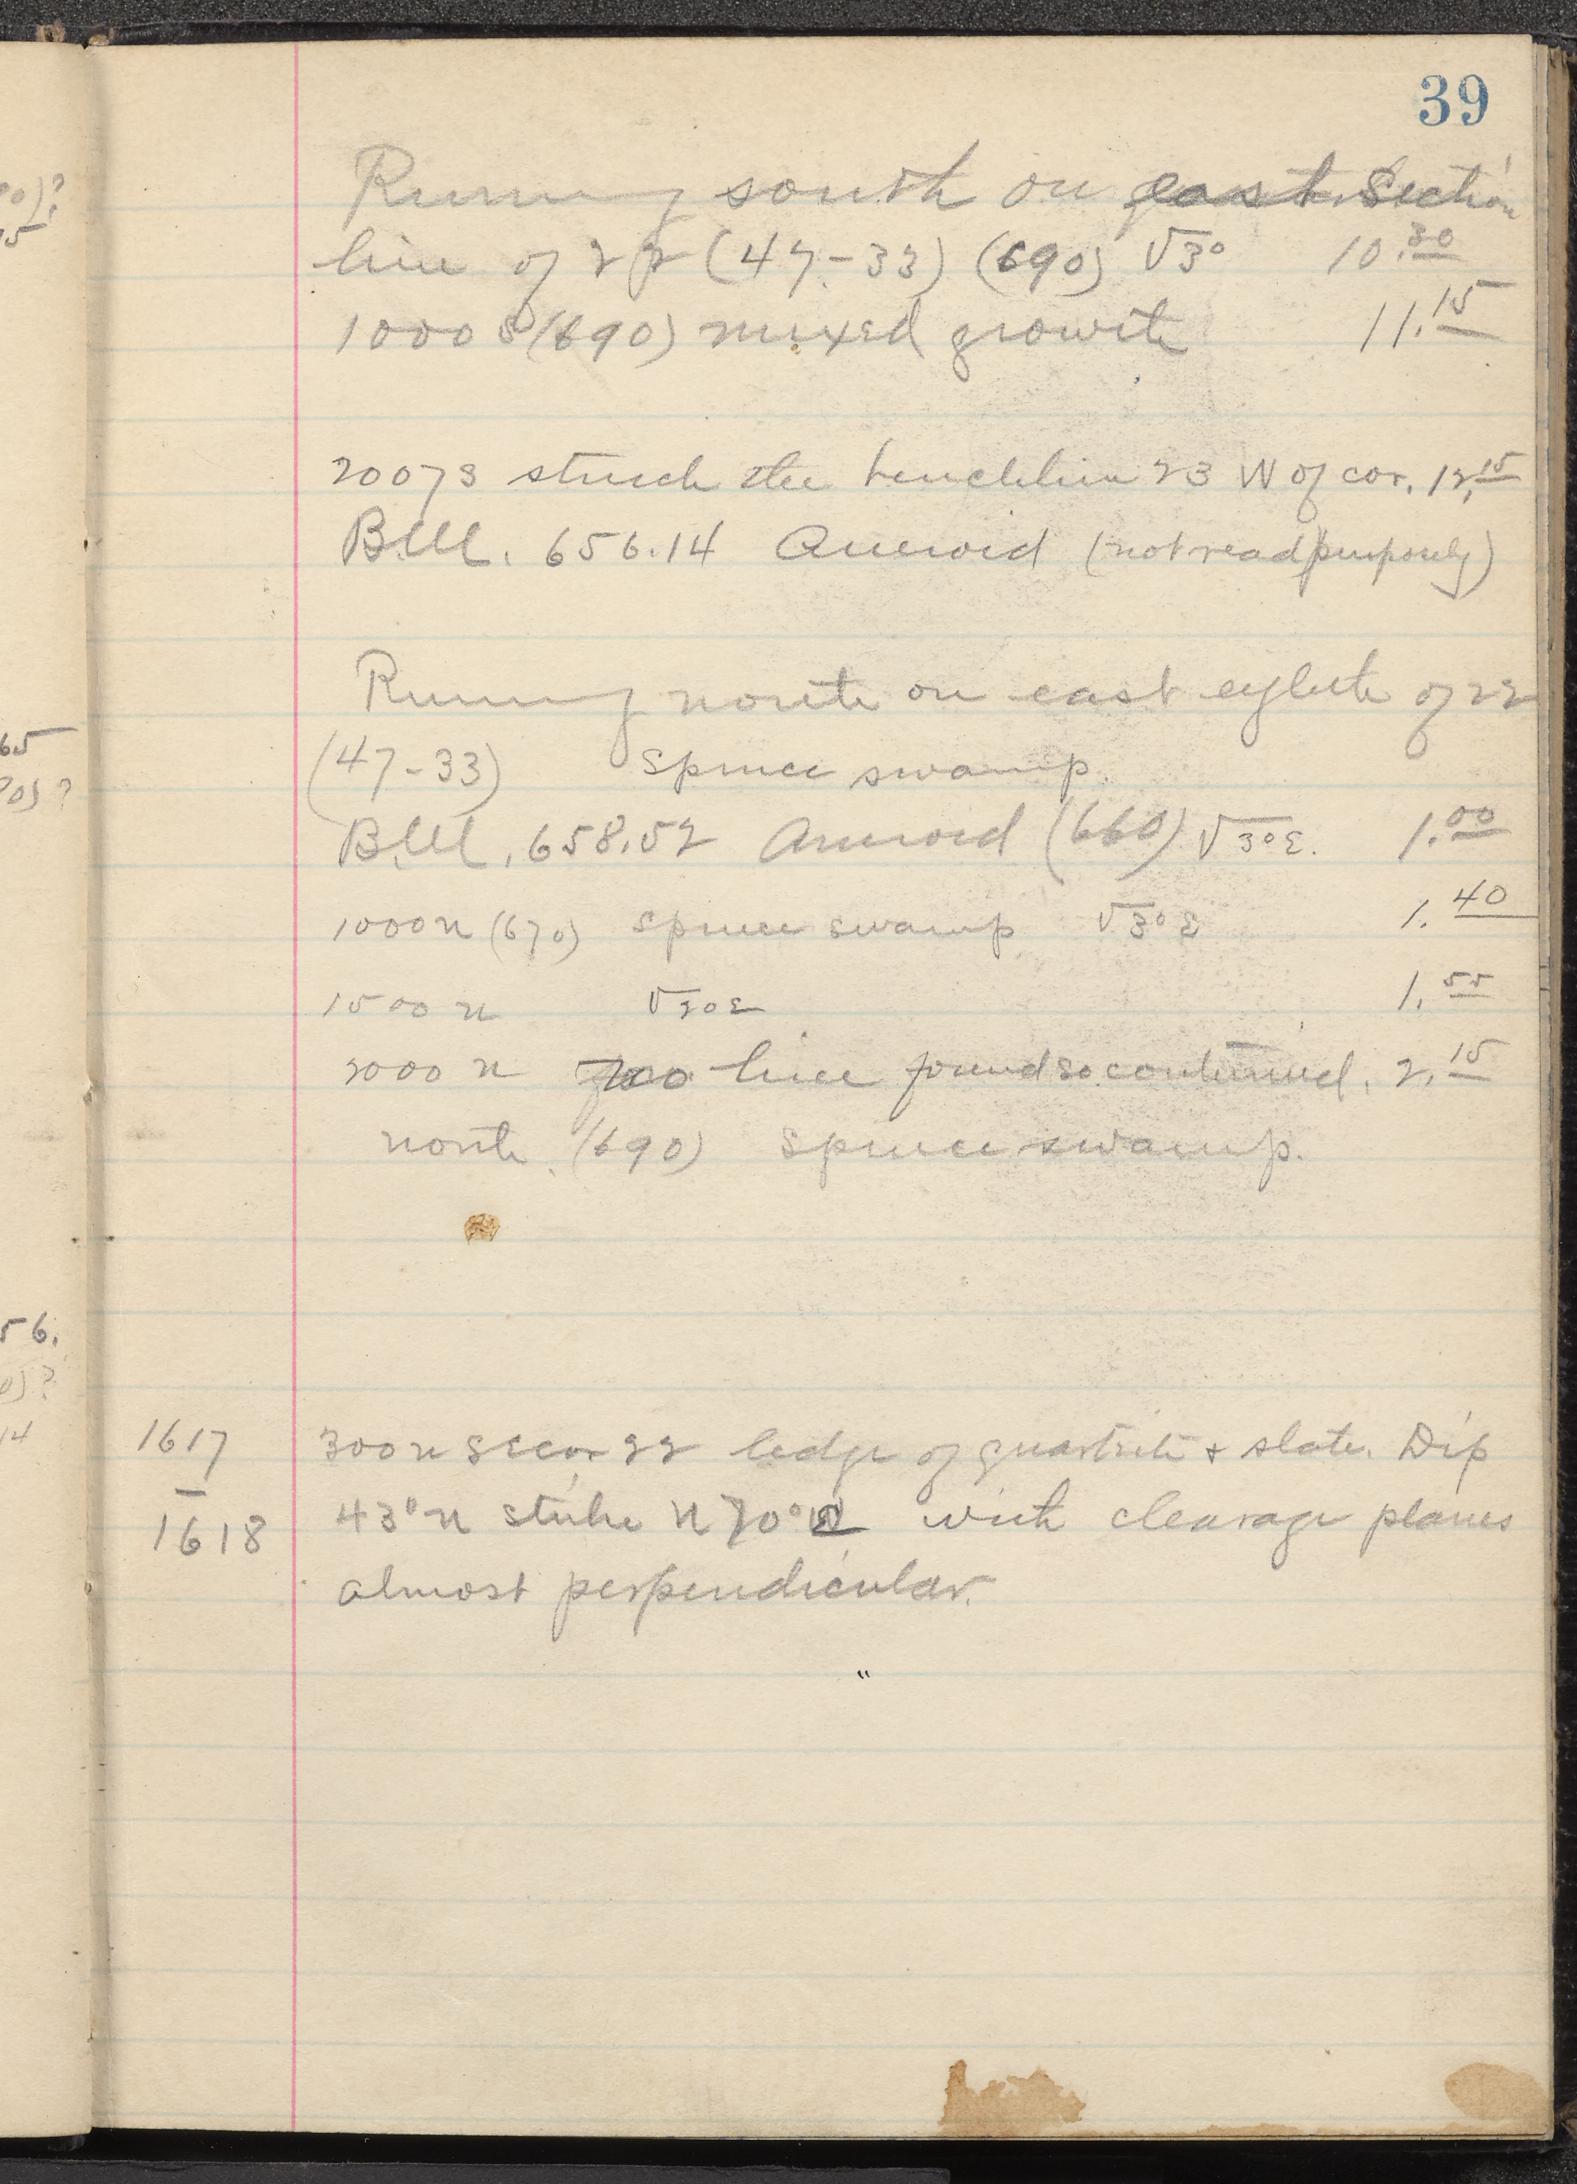 39
Running south on east Section
line of 22 (47-33) (690) V3° 10.30
1000 S (690) mixed growth 11.15
2007 S struck the bench line 23 W of cor. 12.15
B.M. 656.14 Aneroid (not read purposely)
Running north on east eighth of 22
(47-33) Spruce swamp
B.M. 658.52 Aneroid (660) V3°E. 1.00
1000 N (670) Spruce swamp V3°E 1.40
1500 N V2°E 1.55
2000 N line found so continued. 2.15
north (690) Spruce swamp.
1617 300 N SE cor 22 ledge of quartzite & slate. Dip
–
1618 43° N strike N 70° W with cleavage planes
almost perpendicular.